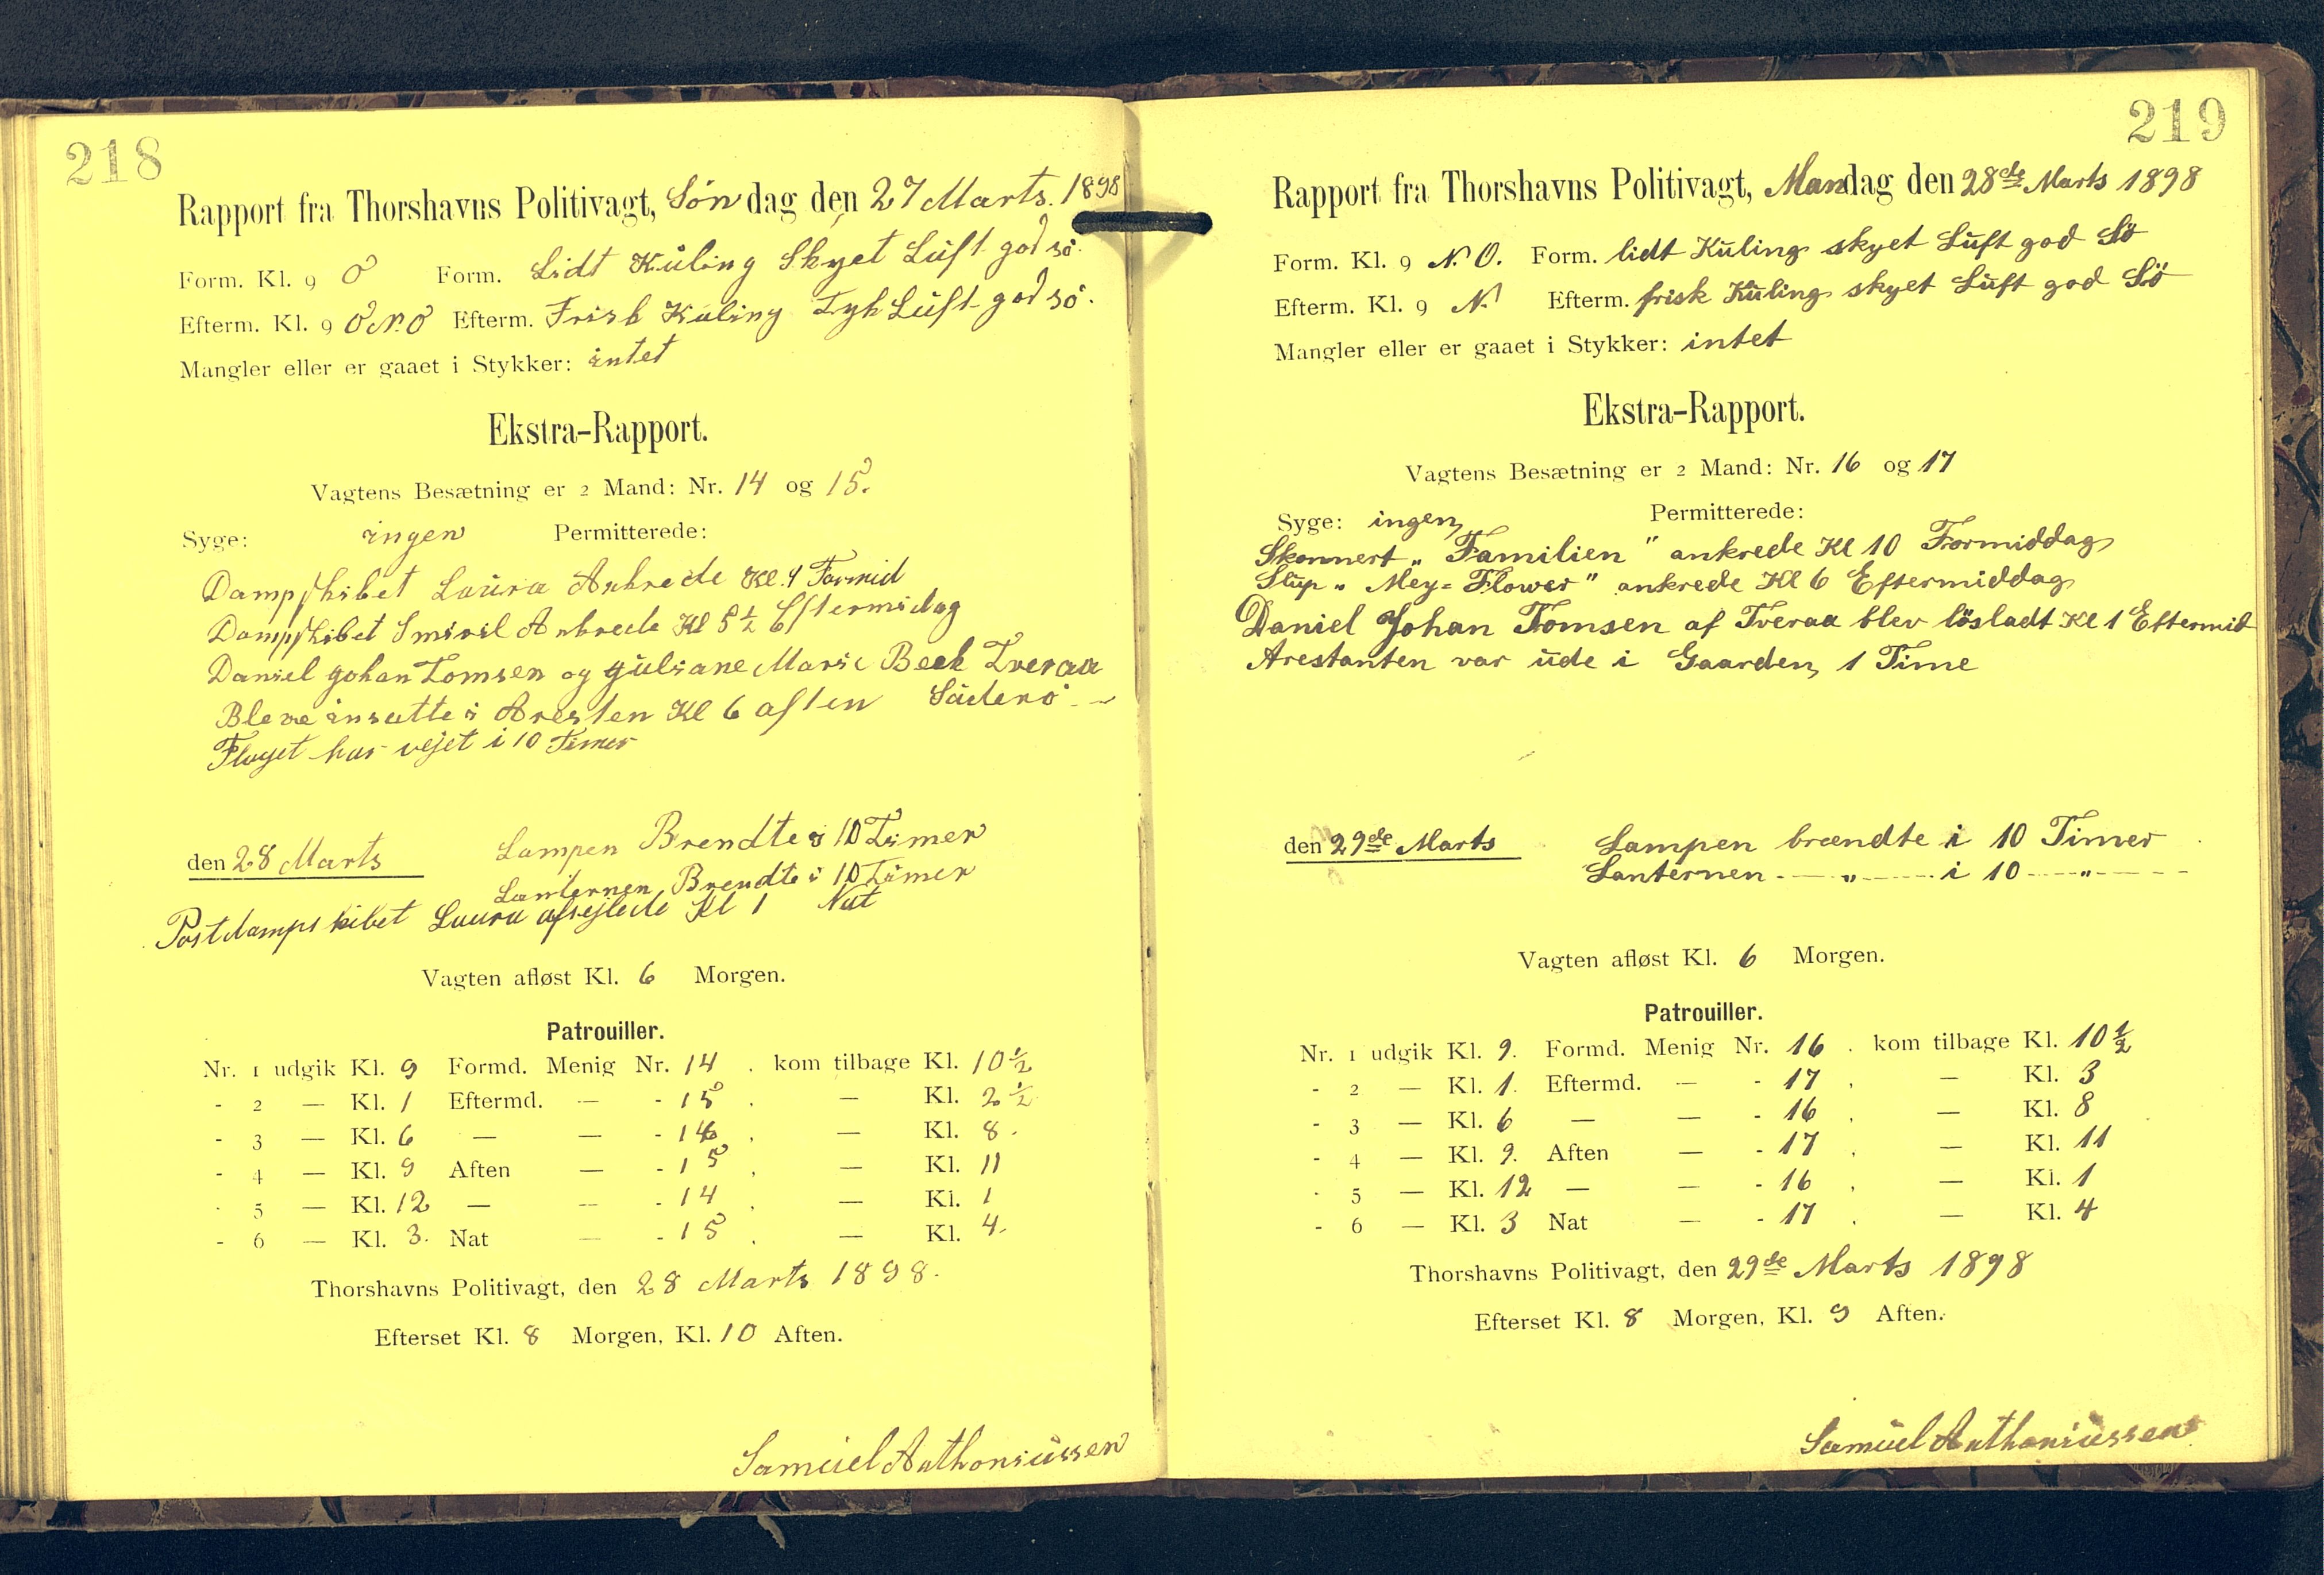 218
Rapport fra Thorshavns Politivagt, Søndag den 27 Marts. 1898
Form. Kl. 9 O Form. Lidt Kuling Skyet Luft god sö.
Efterm. Kl. 9 O.N.O Efterm. Frisk Kuling Tyk Luft god sö.
Mangler eller er gaaet i Stykker: intet
Ekstra-Rapport.
Vagtens Besætning er 2 Mand: Nr. 14 og 15.
Syge: ingen Permitterede:
Dampskibet Laura Ankrede Kl. 4 Formid
Dampskibet Smiril Ankrede Kl 5 1/2 Eftermidag
Daniel Johan Tomsen og Juliane Marie Beck Tveraa
Bleve insatte i Aresten Kl 6 aften Süderö
Flaget har vejet i 10 Timer
den 28 Marts Lampen Brendte i 10 Timer
Lanternen Brendte i 10 Timer
Postdampskibet Laura afsejlede Kl 1 Nat
Vagten afløst Kl. 6 Morgen.
Patrouiller.
Nr. 1 udgik Kl. 9 Formd. Menig Nr. 14 . kom tilbage Kl. 10 1/2
- 2 — Kl. 1 Eftermd. — - 15 . — Kl. 2 1/2
- 3 — Kl. 6 — — - 14 . — Kl. 8.
- 4 — Kl. 9 Aften — - 15 . — Kl. 11
- 5 — Kl. 12 — — - 14 . — Kl. 1
- 6 — Kl. 3. Nat — - 15 . — Kl. 4.
Thorshavns Politivagt, den 28 Marts 1898.
Efterset Kl. 8 Morgen, Kl. 10 Aften.
Samuel Anthoniussen
219
Rapport fra Thorshavns Politivagt, Mandag den 28de Marts 1898
Form. Kl. 9 N.O. Form. lidt Kuling skyet Luft god Sö
Efterm. Kl. 9 N. Efterm. frisk Kuling skyet Luft god Sö
Mangler eller er gaaet i Stykker: intet
Ekstra-Rapport.
Vagtens Besætning er 2 Mand: Nr. 16 og 17
Syge: ingen Permitterede:
Skonnert „Familien" ankrede Kl 10 Formiddag
Slup „Mey=Flower" ankrede Kl 6 Eftermiddag
Daniel Johan Tomsen af Tveraa blev lösladt Kl 1 Eftermid
Arestanten var ude i Gaarden 1 Time
den 29de Marts Lampen brændte i 10 Timer
Lanternen - — „ — i 10 — „ —
Vagten afløst Kl. 6 Morgen.
Patrouiller.
Nr. 1 udgik Kl. 9. Formd. Menig Nr. 16 . kom tilbage Kl. 10 1/2
- 2 — Kl. 1. Eftermd. — - 17 . — Kl. 3
- 3 — Kl. 6 — — - 16 . — Kl. 8
- 4 — Kl. 9. Aften — - 17 . — Kl. 11
- 5 — Kl. 12 — — - 16 . — Kl. 1
- 6 — Kl. 3 Nat — - 17 . — Kl. 4
Thorshavns Politivagt, den 29de Marts 1898
Efterset Kl. 8 Morgen, Kl. 9 Aften.
Samuel Anthoniussen